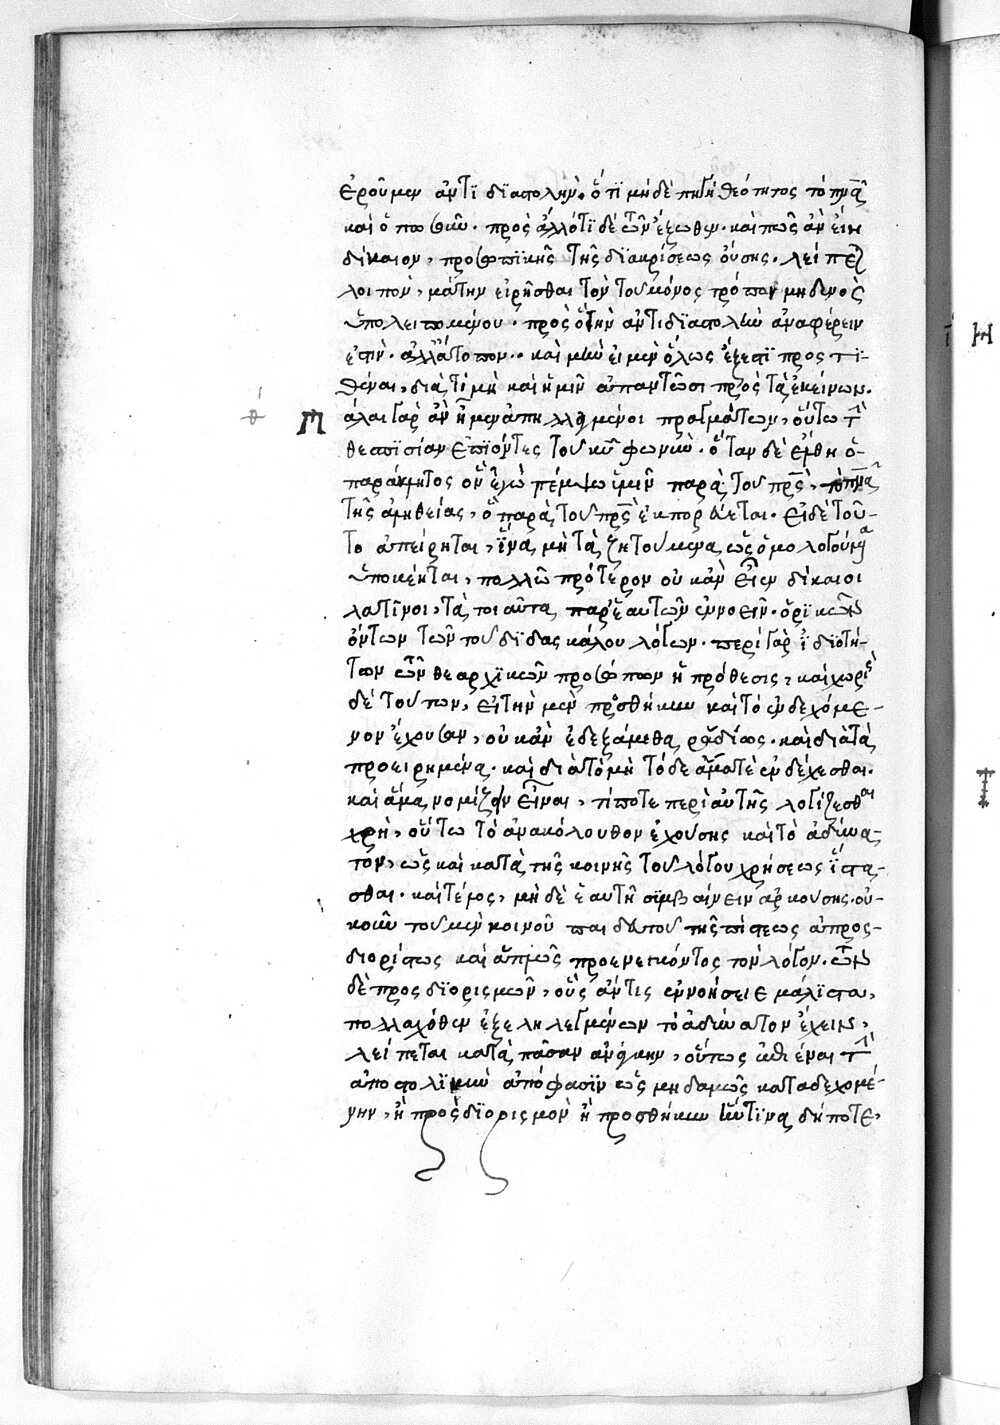 ἐροῦμεν ἀντιδιαστολήν. ὅτι μὴ δὲ πηγὴ θεότητος τὸ πνα
καὶ ὅπως οὖν. πρὸς ἄλλό τι δὲ τῶν ἔξωθεν. καὶ πῶς ἂν εἴη
δίκαιον, προσωπικῆς τῆς διακρίσεως οὔσης. λείπετ
λοιπὸν, μάτην εἰρῆσθαι τὸν τοῦ μόνος τρόπον μηδενὸς
ὑπολειπομένου. πρὸς ὃ τὴν ἀντιδιαστολὴν ἀναφέρειν
ἐστὶν. ἀλλ' ἄτοπον. καὶ μὴν εἰ μὲν ὅλως ἔξεστι προστι-
θέναι, διατί μὴ καὶ ἡμῖν ἀπαντῶσι πρὸς τὰ ἐκείνων.
Πάλαι γὰρ ἂν ἦμεν ἀπηλλαγμένοι πραγμάτων, οὕτω τὴν
θεσπισίαν ἐπιόντες τοῦ κυ φωνὴν. ὅταν δὲ ἔλθη ὁ
παράκλητος ὃν ἐγὼ πέμψω ὑμῖν παρὰ τοῦ πρς, τὸ πνα
τῆς ἀληθείας, ὃ παρὰ τοῦ πρς ἐκπορεύεται. Εἰ δὲ τοῦ-
το ἀπείρηται, ἵνα μὴ τὰ ζητούμενα ὡς ὁμολογούμενα
ὑποκέηται, πολλῶ πρότερον οὐκ ἂν εἶεν δίκαιοι
λατῖνοι, τὰ τοιαῦτα παρ' ἑαυτῶν ἐννοεῖν. ὁρικῶν
ὄντων τῶν τοῦ διδασκάλου λόγων. περὶ γὰρ ἰδιοτή-
των τῶν θεαρχικῶν προσώπων ἡ πρόθεσις, καὶ χωρὶς
δὲ τούτων, εἰ τὴν μὲν προσθήκην καὶ τὸ ἐνδεχόμε-
νον ἔχουσαν, οὐκ ἂν ἐδεξάμεθα ραδίως. καὶ διὰ τὰ
προειρημένα. καὶ διὰ τὸ μὴ τόδε ἅμα τὲ ἐνδέχεσθαι.
καὶ ἅμα νομίζειν εἶναι, τί ποτε περὶ αὐτῆς λογίζεσθαι
χρὴ, οὕτω τὸ ἀνακόλουθον ἐχούσης καὶ τὸ ἀδύνα-
τον, ὡς καὶ κατὰ τῆς κοινῆς τοῦ λόγου χρήσεως ἵστα-
σθαι. καὶ τέλος, μὴ δὲ ἑαυτῆ συμβαίνειν ἀρκούσης. οὐ-
κοῦν τοῦ μὲν κοινοῦ παιδευτοῦ τῆς πίστεως ἀπροσ-
διορίστως καὶ ἁπλῶς προενεγκόντος τὸν λόγον. τῶν
δὲ προσδιορισμῶν, οὓς ἄν τις ἐννοήσειε μάλιστα,
πολλαχόθεν ἐξεληλεγμένων τὸ ἀδύνατον ἔχειν,
λείπεται κατὰ πᾶσαν ἀνάγκην, οὕτως ἀθιέναι τὴν
ἀποστολικὴν ἀπόφασιν ὡς μηδαμῶς καταδεχομέ-
νην, ἢ προσδιορισμὸν ἢ προσθήκην ἥντινα δήποτε,